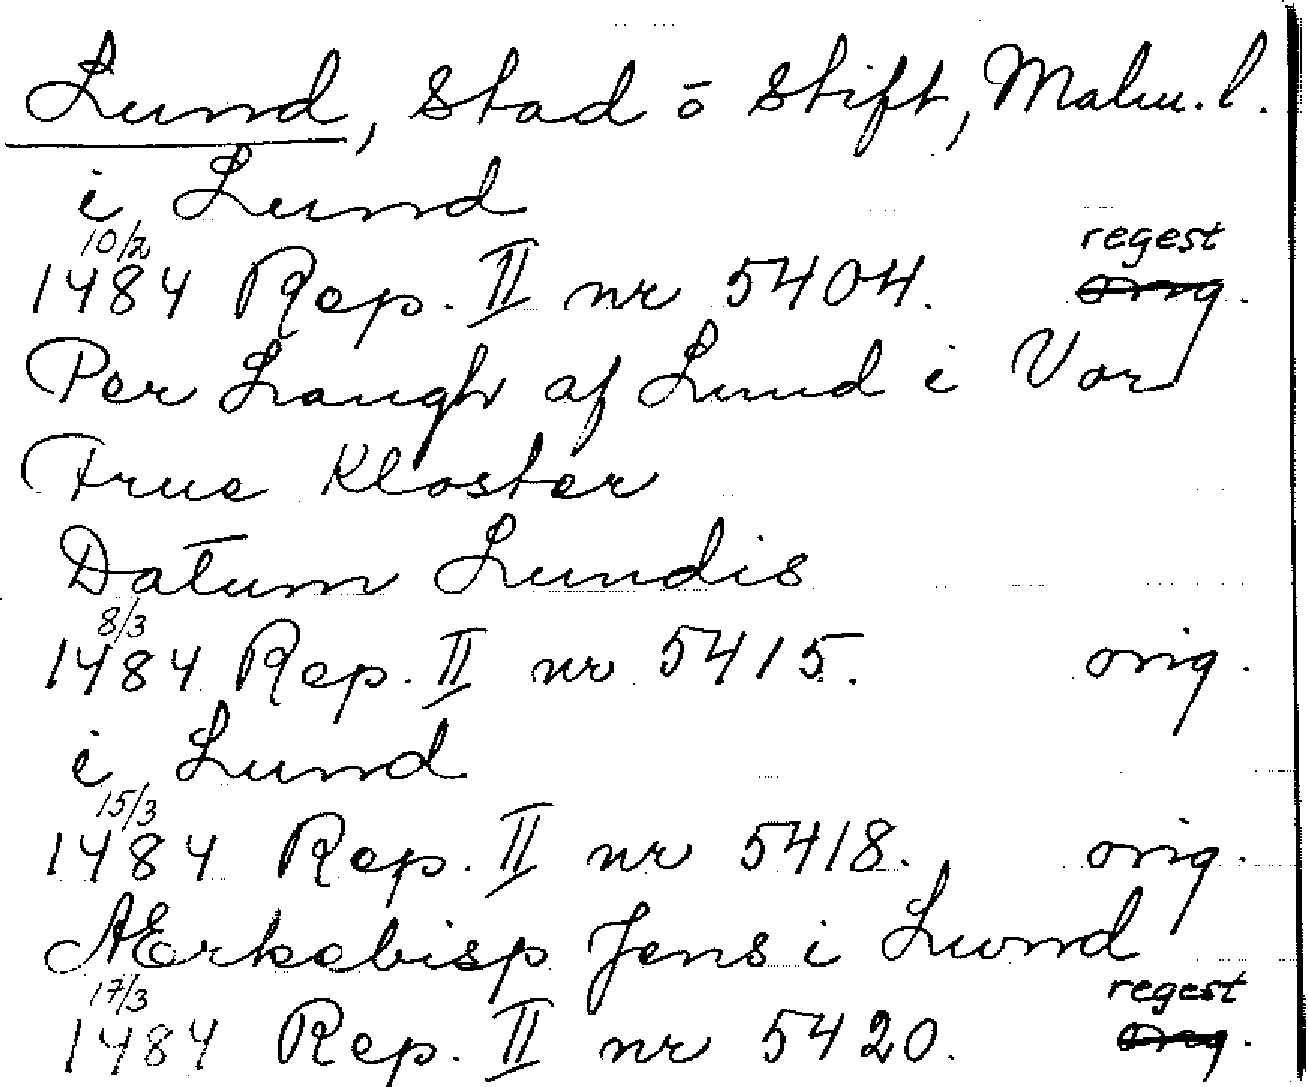 Lund, Stad ō Stift, Malm. l.
i Lund
10/2 regest
1484 Rep. II nr 5404. orig.
Per Laugh af Lund i Vor
Frue Kloster
Datum Lundis
8/3
1484 Rep. II nr 5415. orig.
i Lund
15/3
1484 Rep. II nr 5418. orig.
Ærkebisp Jens i Lwnd
17/3 regest
1484 Rep. II nr 5420. orig.